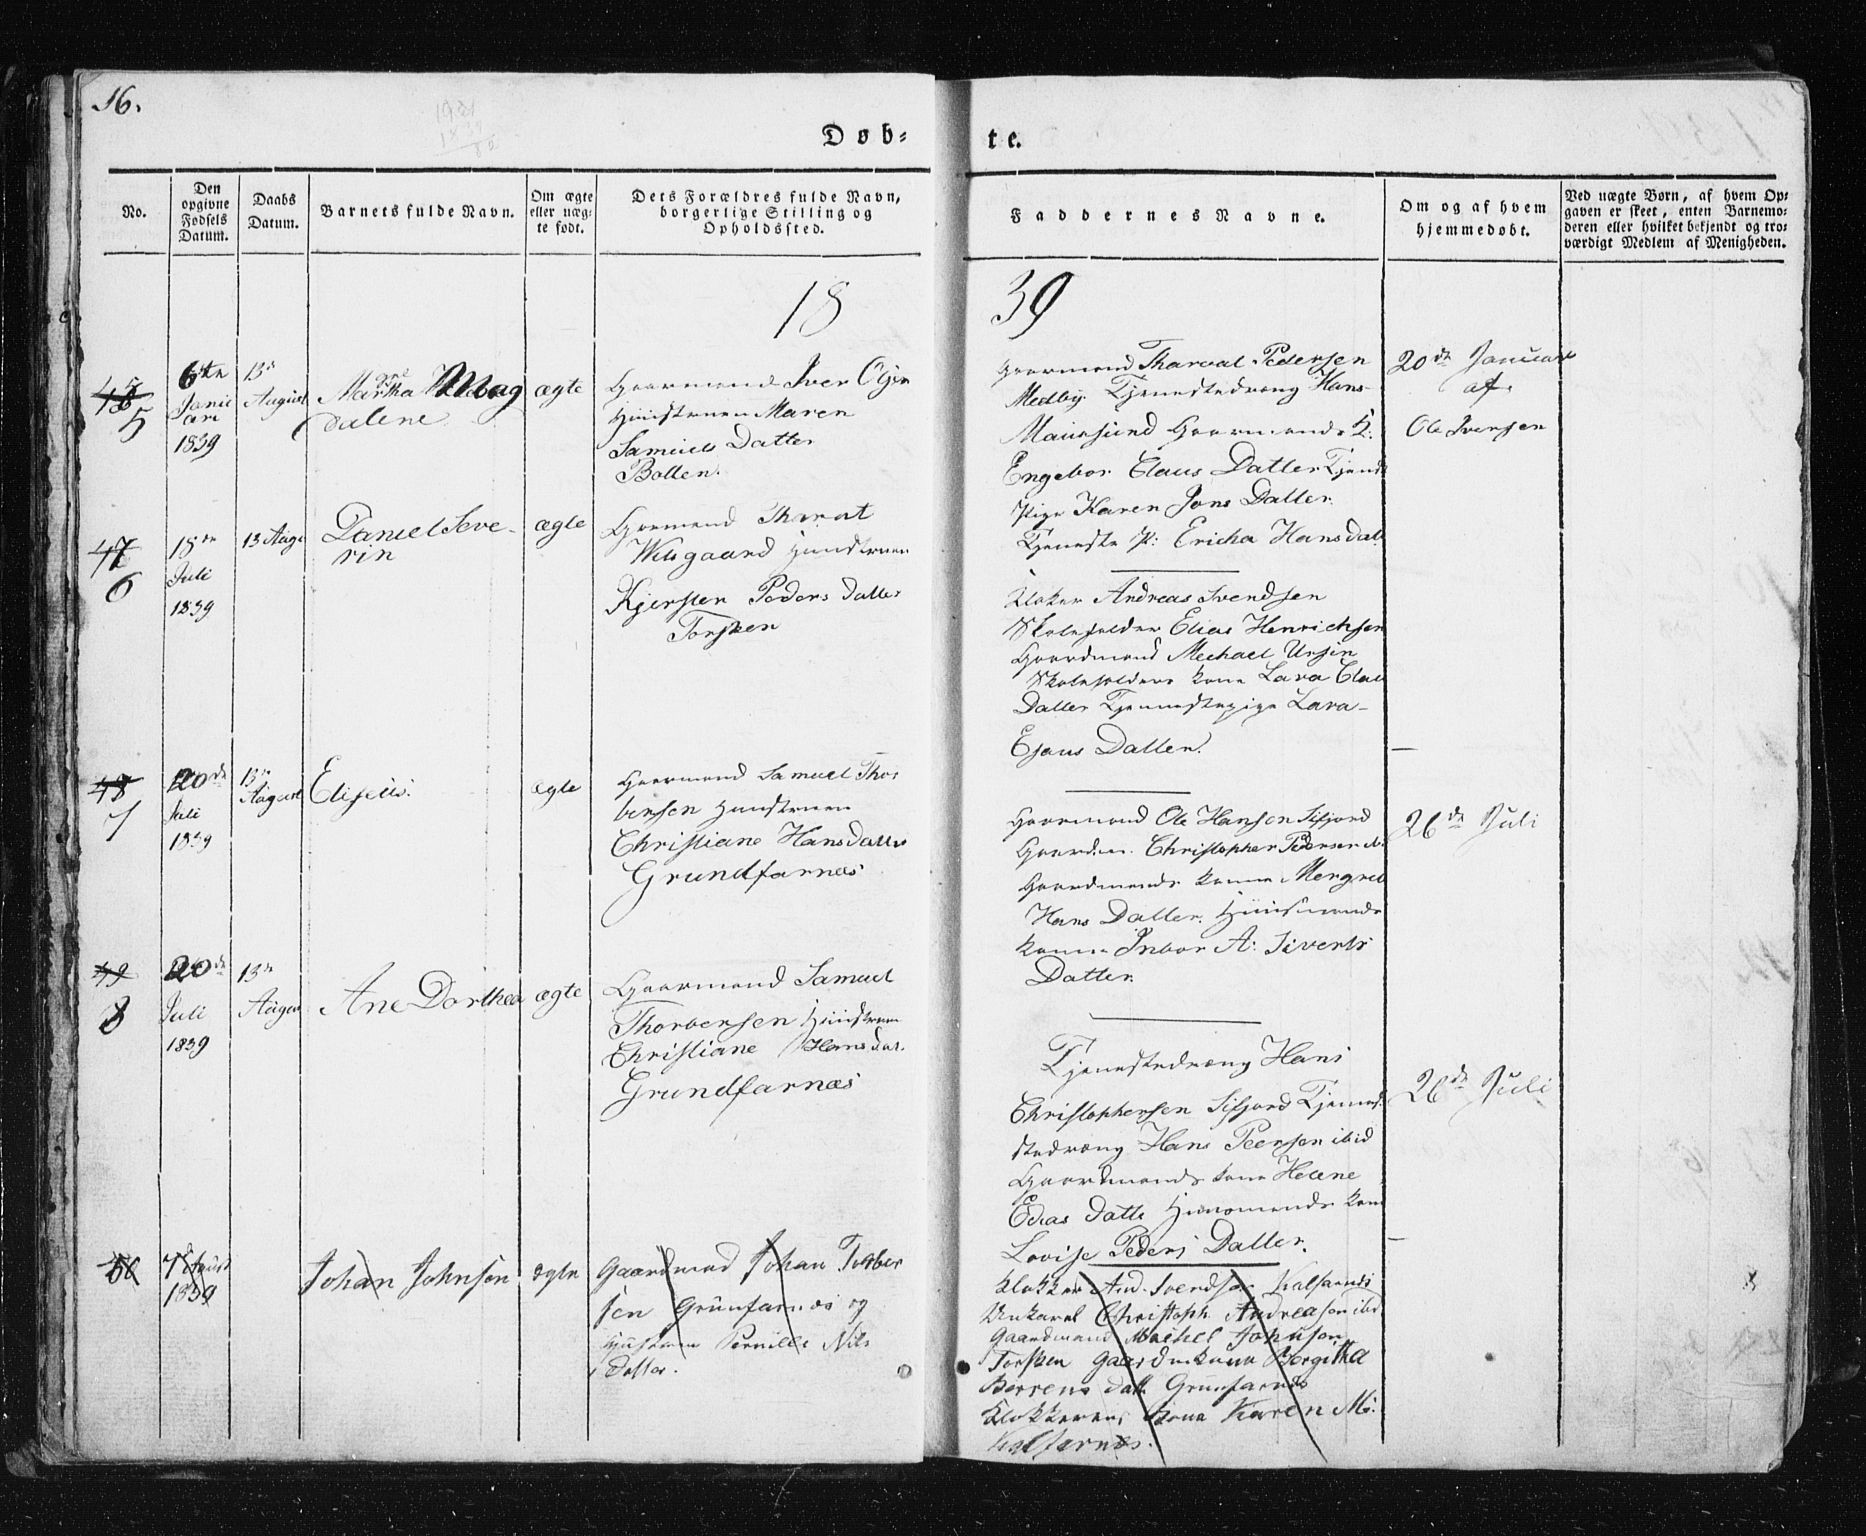 16.
Døb=
te.
No.
Den opgivne Fødsels Datum.
Daabs Datum.
Barnets fulde Navn.
Om ægte eller uæg= te født.
Dets Forældres fulde Navn, borgerlige Stilling og Opholdssted.
Faddernes Navne.
Om og af hvem hjemmedøbt.
Ved uægte Børn, af hvem Op= gaven er skeet, enten Barnemo= deren eller hvilket bekjendt og tro= værdigt Medlem af Menigheden.
18
39
5
6te
Janu
ari
1839
13de
August
Martha Mag
dalene
ægte
Gaarmand Iver
Huustruen Maren
Samuels Datter
Ballen.
Gaarmand Tharval Pedersen
Medby. Tjenestedreng Hans
Mauesund Gaarmands K.
Engebor Claus Datter Tjeneste
Pige Karen Jons Datter.
Tjeneste P: Ericha Hansdat.
20de Januar
af
Ole Iversen
47
6
18de
Juli
1839
13 Aug
Daniel Seve-
rin
ægte
Gaarmand
Wilsgaard Huustruen
Kjersten Peders Datter
Torsken
Kloker Andreas Svendsen
Skoleholder Elias Henrichsen
Gaardmand Mechael Ursin
Skoleholders kone Lava Clau
Datter Tjennestepige Lava
Ejaus Datter.
48
7
20de
Juli
1839
13de
August
Eliseus.
ægte
Gaarmand Samuel Thor
bersen Huustruen
Christiane Hansdatter
Grundfarnæs
Gaarmand Ole Hansen Sifjord
Gaardm. Christopher Pedersen
Gaardmands kone Mergret
Hans Datter. Huusmands
kone Inbor A: Siverts
Datter.
26de Juli
49
8
20de
Juli
1839
13de
August
Ane Dorthea
ægte
Gaarmand Samuel
Thorbersen Huustruen
Christiane Hansdat.
Grundfarnæs
Tjenestedreng Hans
Christophersen Sifjord Tjenne
stedreng Hans Peersen ibid
Gaardmands kone Helene
Edias Datte Huusmands kone
Lovise Peders Datter.
26de Juli
50
7
1839
Johan Johnsen
ægte
Gaardmand Johan Torber
sen Grunfarnæs og
Hustruen Pernille Nils
Datter.
Klokker And. Svendsen Kalfarnæs
Unkarel Christoph Andreasen ibid
Gaardmand Michel Johnsen
Torsken Gaardmkone Bergitha
Berrens Datt. Grunfarnæs
Klokkerens kone Karen M:
Kalfarnæs.